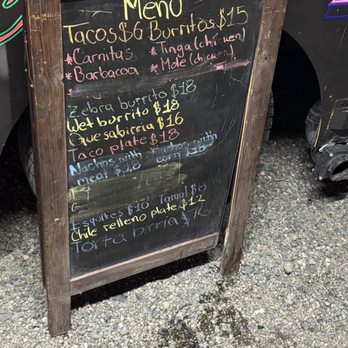 Menu
Tacos $6 Burritos $15
*Carnitas *Tinga (chicken)
*Barbacoa *Mole (chicken)
Zebra burrito $18
Wet burrito $18
Quesabirria $16
Taco plate $18
Nachos with Nachos with
meat $18 corn
Esquites $10 Tamal $8
Chile relleno plate $12
Torta birria $16